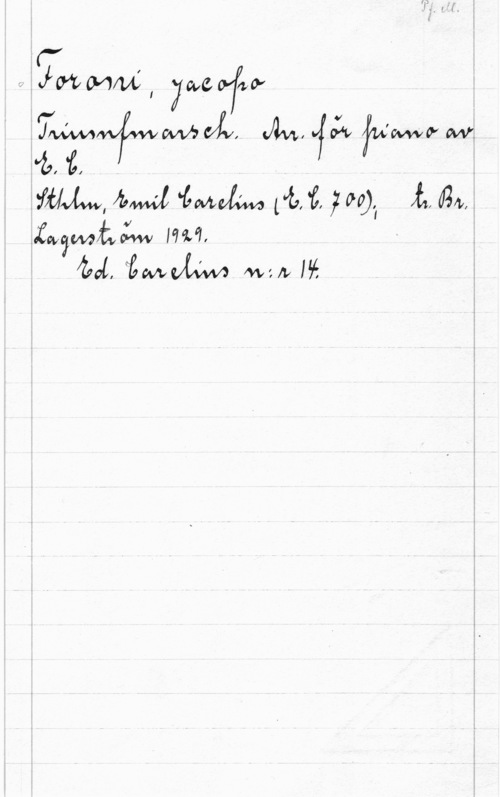 Pf. M.
Foroni, Jacopo
Triumfmarsch. Arr. för piano av
E. C.
Sthlm, Emil Carelius (E. C. 700); tr. Br.
Lagerström 1929.
Ed. Carelius n:r 14.